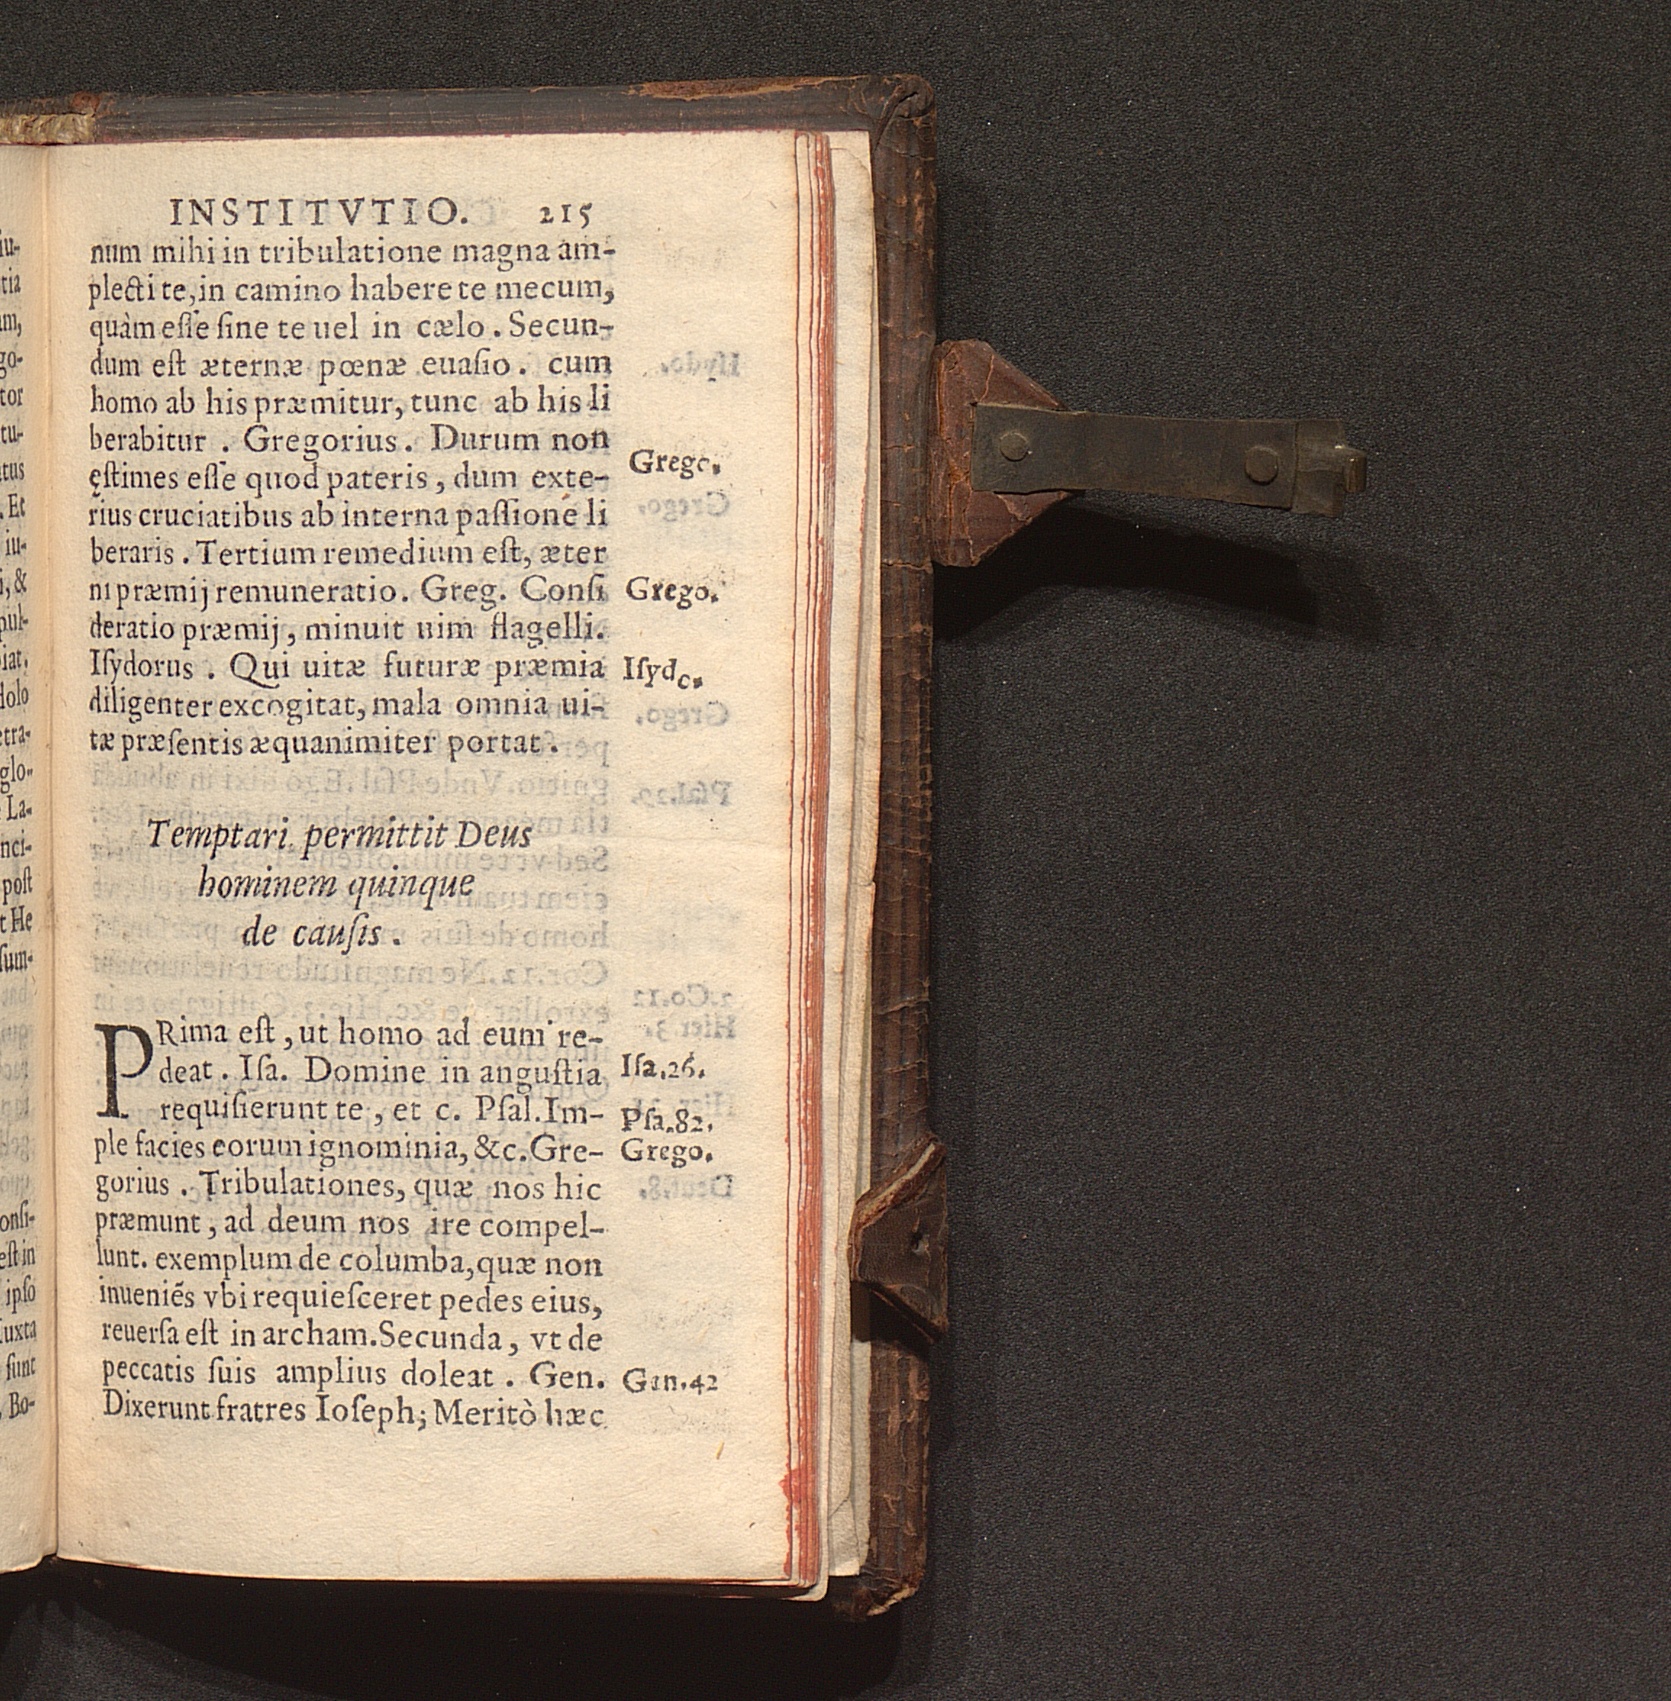 INSTITVTIO. 215
num mihi in tribulatione magna am-
plecti te, in camino habere te mecum,
quàm eſſe ſine te uel in cælo. Secun-
dum eſt æternæ pœnæ euaſio. cum
homo ab his præmitur, tunc ab his li
berabitur. Gregorius. Durum non
Grego.
ęſtimes eſſe quod pateris, dum exte-
rius cruciatibus ab interna paſſione li
beraris. Tertium remedium eſt, æter
ni præmij remuneratio. Greg. Conſi
Grego.
deratio præmij, minuit uim flagelli.
Iſydorus. Qui uitæ futuræ præmia
Iſydo.
diligenter excogitat, mala omnia ui-
tæ præſentis æquanimiter portat.
Temptari permittit Deus
hominem quinque
de cauſis.
PRima eſt, ut homo ad eum re-
deat. Iſa. Domine in anguſtia
Iſa.26.
requiſierunt te, et c. Pſal. Im-
Pſa.82.
ple facies eorum ignominia, &c. Gre-
Grego.
gorius. Tribulationes, quæ nos hic
præmunt, ad deum nos ire compel-
lunt. exemplum de columba, quæ non
inueniẽs vbi requieſceret pedes eius,
reuerſa eſt in archam. Secunda, vt de
peccatis ſuis amplius doleat. Gen.
Gen.42
Dixerunt fratres Ioſeph; Meritò hæc
iu-
tia
um,
go-
tor
tu-
tus
. Et
iu-
i, &
pul-
iat.
dolo
etra-
glo-
La-
nci-
poſt
t He
ſum-
onſi-
eſt in
ipſo
iuxta
ſunt
. Bo-